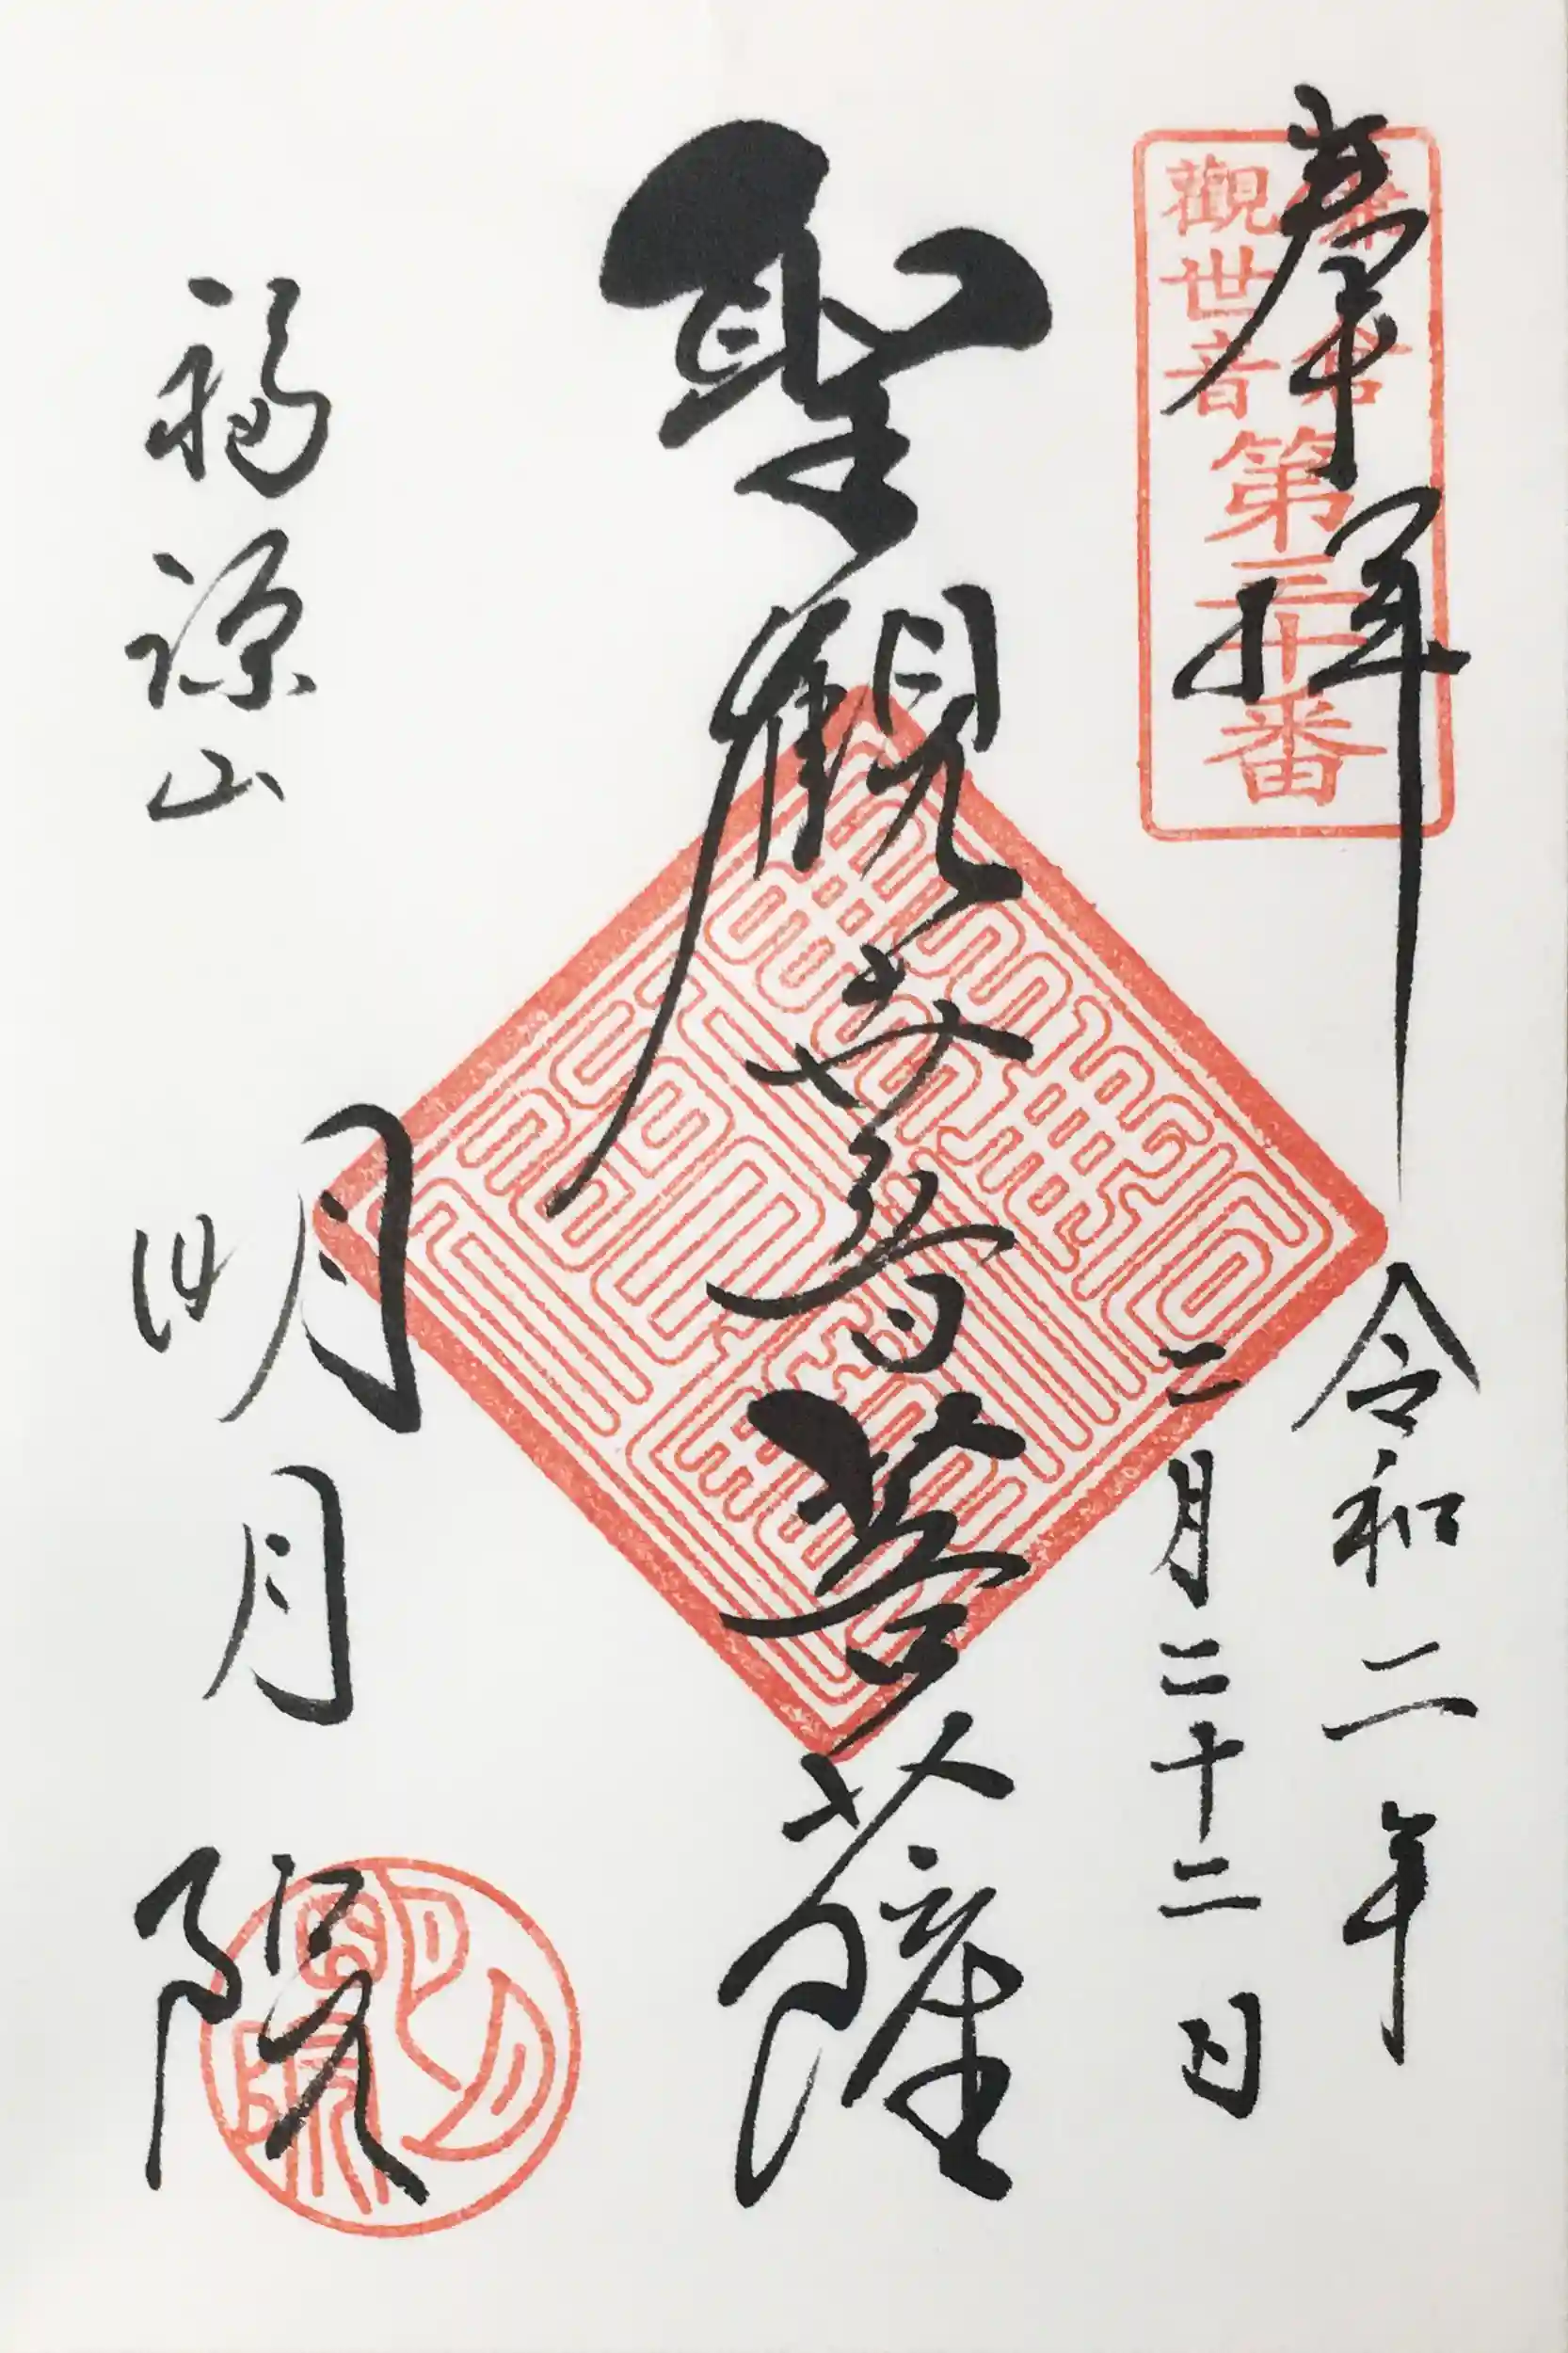 奉拝
鎌倉
觀世音
第三十番
令和二年
二月二十二日
聖觀世音菩薩
福源山
明月院